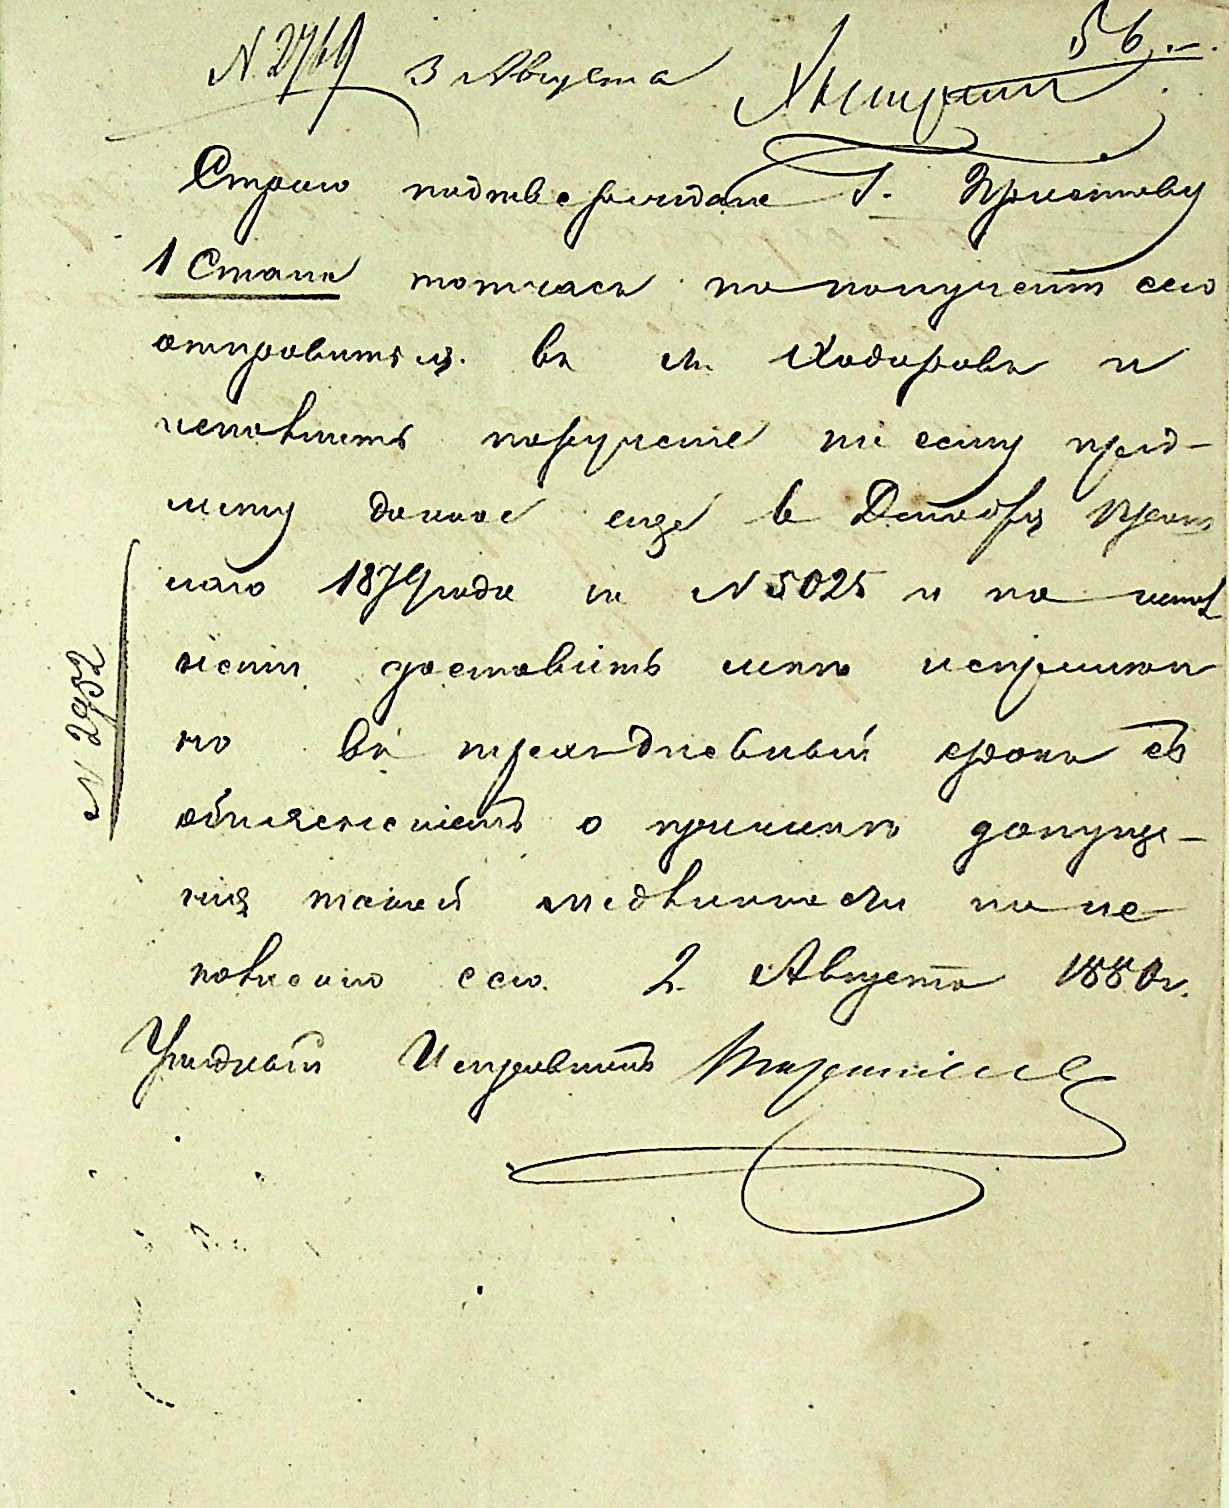 N. 2769 3 Августа 56
Строго подтверждаю Г. Приставу
1 Стана тотчасъ по полученіи сего
отправиться въ м. Ходоровъ и
исполнить порученіе по сему пред-
мету данное еще в Декабрѣ прош
лаго 1879 года за N 5025 и по испол
неніи доставить мнѣ непремен
но въ трехъдневный срокъ съ
объясненіемъ о причинѣ допуще-
нія такой медленности по не
полнению сего. 2 Августа 1880 г.
Уѣздный Исправникъ
N 2952